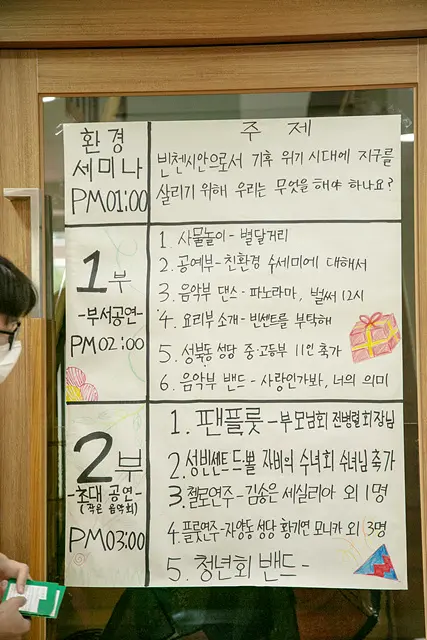 환경
세미나
PM01:00
주 제
빈첸시안으로서 기후 위기 시대에 지구를
살리기 위해 우리는 무엇을 해야 하나요?
1부
-부서공연-
PM02:00
1. 사물놀이 - 별달거리
2. 공예부 - 친환경 수세미에 대해서
3. 음악부 댄스 - 파노라마, 벌써 12시
4. 요리부 소개 - 빈센트를 부탁해
5. 성북동 성당 중·고등부 11인 축가
6. 음악부 밴드 - 사랑인가봐, 너의 의미
2부
-초대 공연-
(작은 음악회)
PM03:00
1. 팬플룻 - 부모님회 전병렬 회장님
2. 성빈센트 드·뽈 자비의 수녀회 수녀님 축가
3. 첼로연주 - 김송은 세실리아 외 1명
4. 플룻연주 - 자양동 성당 황기연 모니카 외 3명
5. 청년회 밴드 -